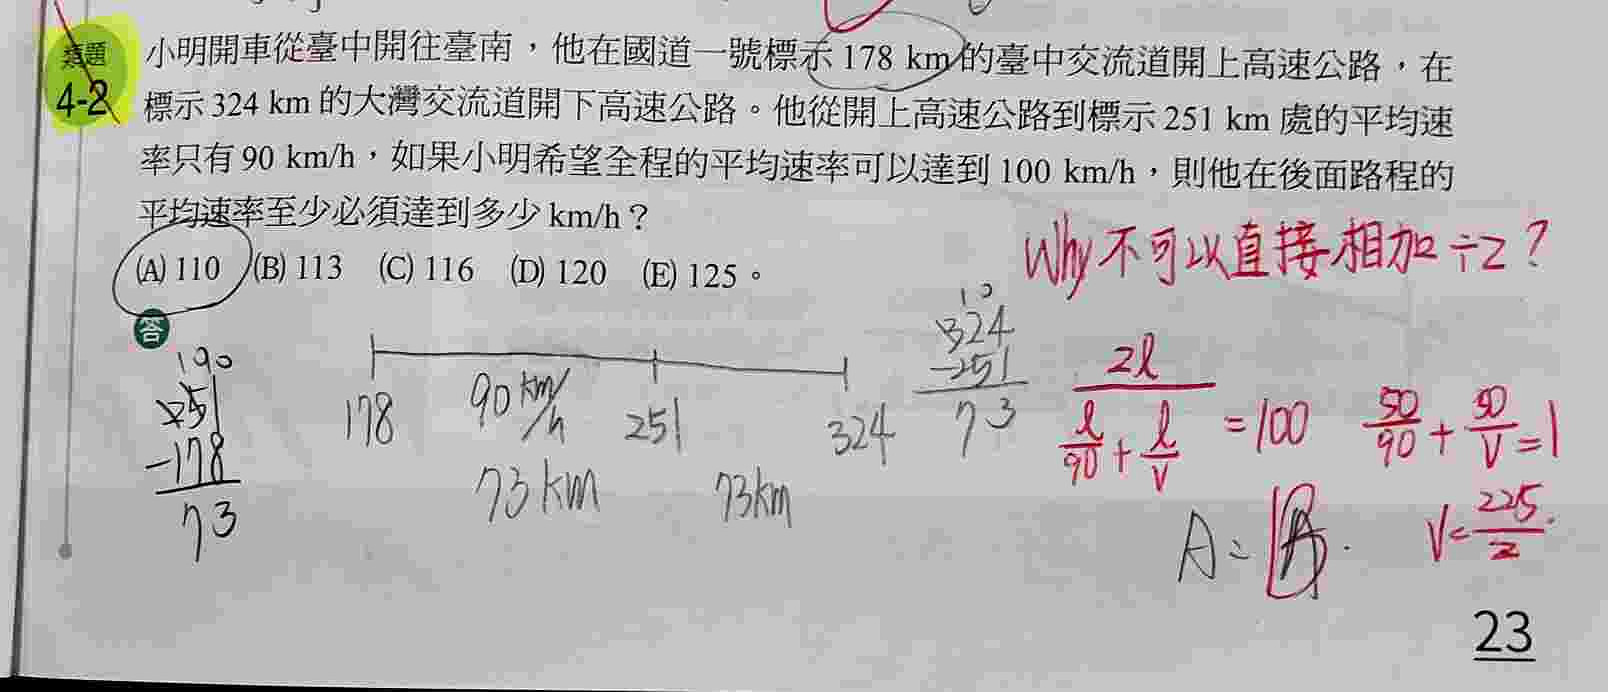 類題
4-2
小明開車從臺中開往臺南，他在國道一號標示 178 km 的臺中交流道開上高速公路，在
標示 324 km 的大灣交流道開下高速公路。他從開上高速公路到標示 251 km 處的平均速
率只有 90 km/h，如果小明希望全程的平均速率可以達到 100 km/h，則他在後面路程的
平均速率至少必須達到多少 km/h？
(A) 110 (B) 113 (C) 116 (D) 120 (E) 125。
Why 不可以直接相加 ÷2？
答
251
-178
73
178 90 km/h 251 324
73 km 73km
324
-251
73
2l
l/90 + l/V = 100
50/90 + 50/V = 1
V = 225/2
A =
23